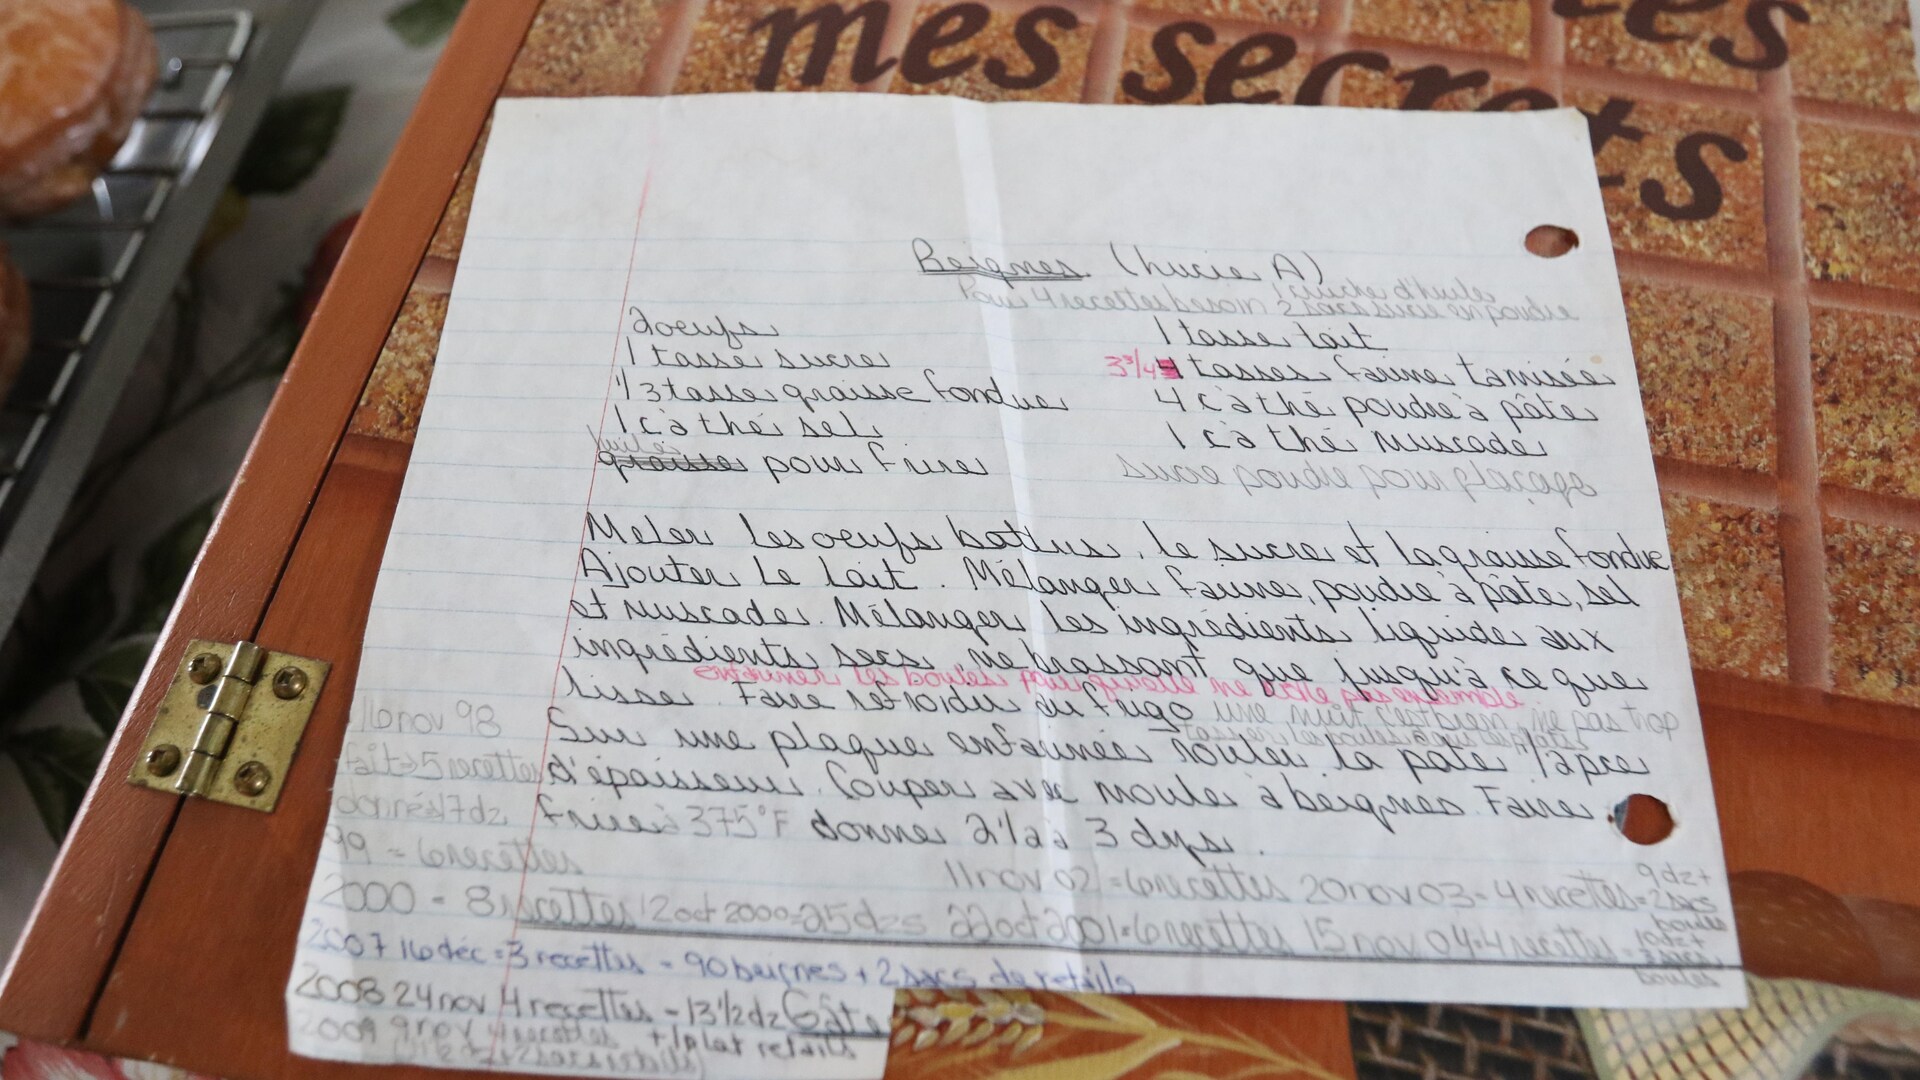 mes secrets
Beignes (Lucie A)
Pour 4 recettes besoin 1 cruche d'huile
2 sacs sucre en poudre
2 oeufs
1 tasse sucre
1/3 tasse graisse fondue
1 c à thé sel
huile
graisse pour frire
1 tasse lait
3 3/4 4 tasses farine tamisée
4 c à thé poudre à pâte
1 c à thé muscade
sucre poudre pour glaçage
Meler les oeufs battus, le sucre et la graisse fondue
Ajouter le lait. Mélanger farine, poudre à pâte, sel
et muscade. Mélanger les ingrédients liquide aux
ingrédients secs ne brassant que jusqu'à ce que
enfariner les boules pour qu'elle ne colle pas ensemble
lisse. Faire refroidir au frigo une nuit c'est bien, ne pas trop
tasser les boules
Sur une plaque enfarinée rouler la pâte 1/2 pce
d'épaisseur. Couper avec moule à beignes. Faire
frire à 375°F donne 2 1/2 à 3 dzs.
16 nov 98
fait 5 recettes
donnés 17 dz
99 = 6 recettes
2000 = 8 recettes 12 oct 2000 = 25 dzs 22 oct 2001 = 6 recettes 15 nov 04 = 4 recettes = 10 dz +
11 nov 02 = 6 recettes 20 nov 03 = 4 recettes = 9 dz +
2 sacs
boules
sacs
boules
2007 16 déc = 3 recettes - 90 beignes + 2 sacs de retails
2008 24 nov 4 recettes - 13 1/2 dz Gâte
2009 9 nov 4 recettes + 1 plat retails